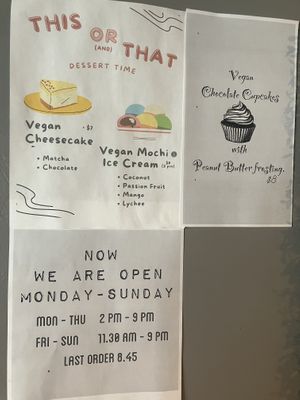 THIS OR THAT
(AND)
DESSERT TIME
Vegan • $7
Cheesecake
• Matcha
• Chocolate
Vegan Mochi
Ice Cream
• Coconut
• Passion Fruit
• Mango
• Lychee
Vegan
Chocolate Cupcakes
with
Peanut Butter frosting.
$8
NOW
WE ARE OPEN
MONDAY - SUNDAY
MON - THU 2 PM - 9 PM
FRI - SUN 11.30 AM - 9 PM
LAST ORDER 8.45